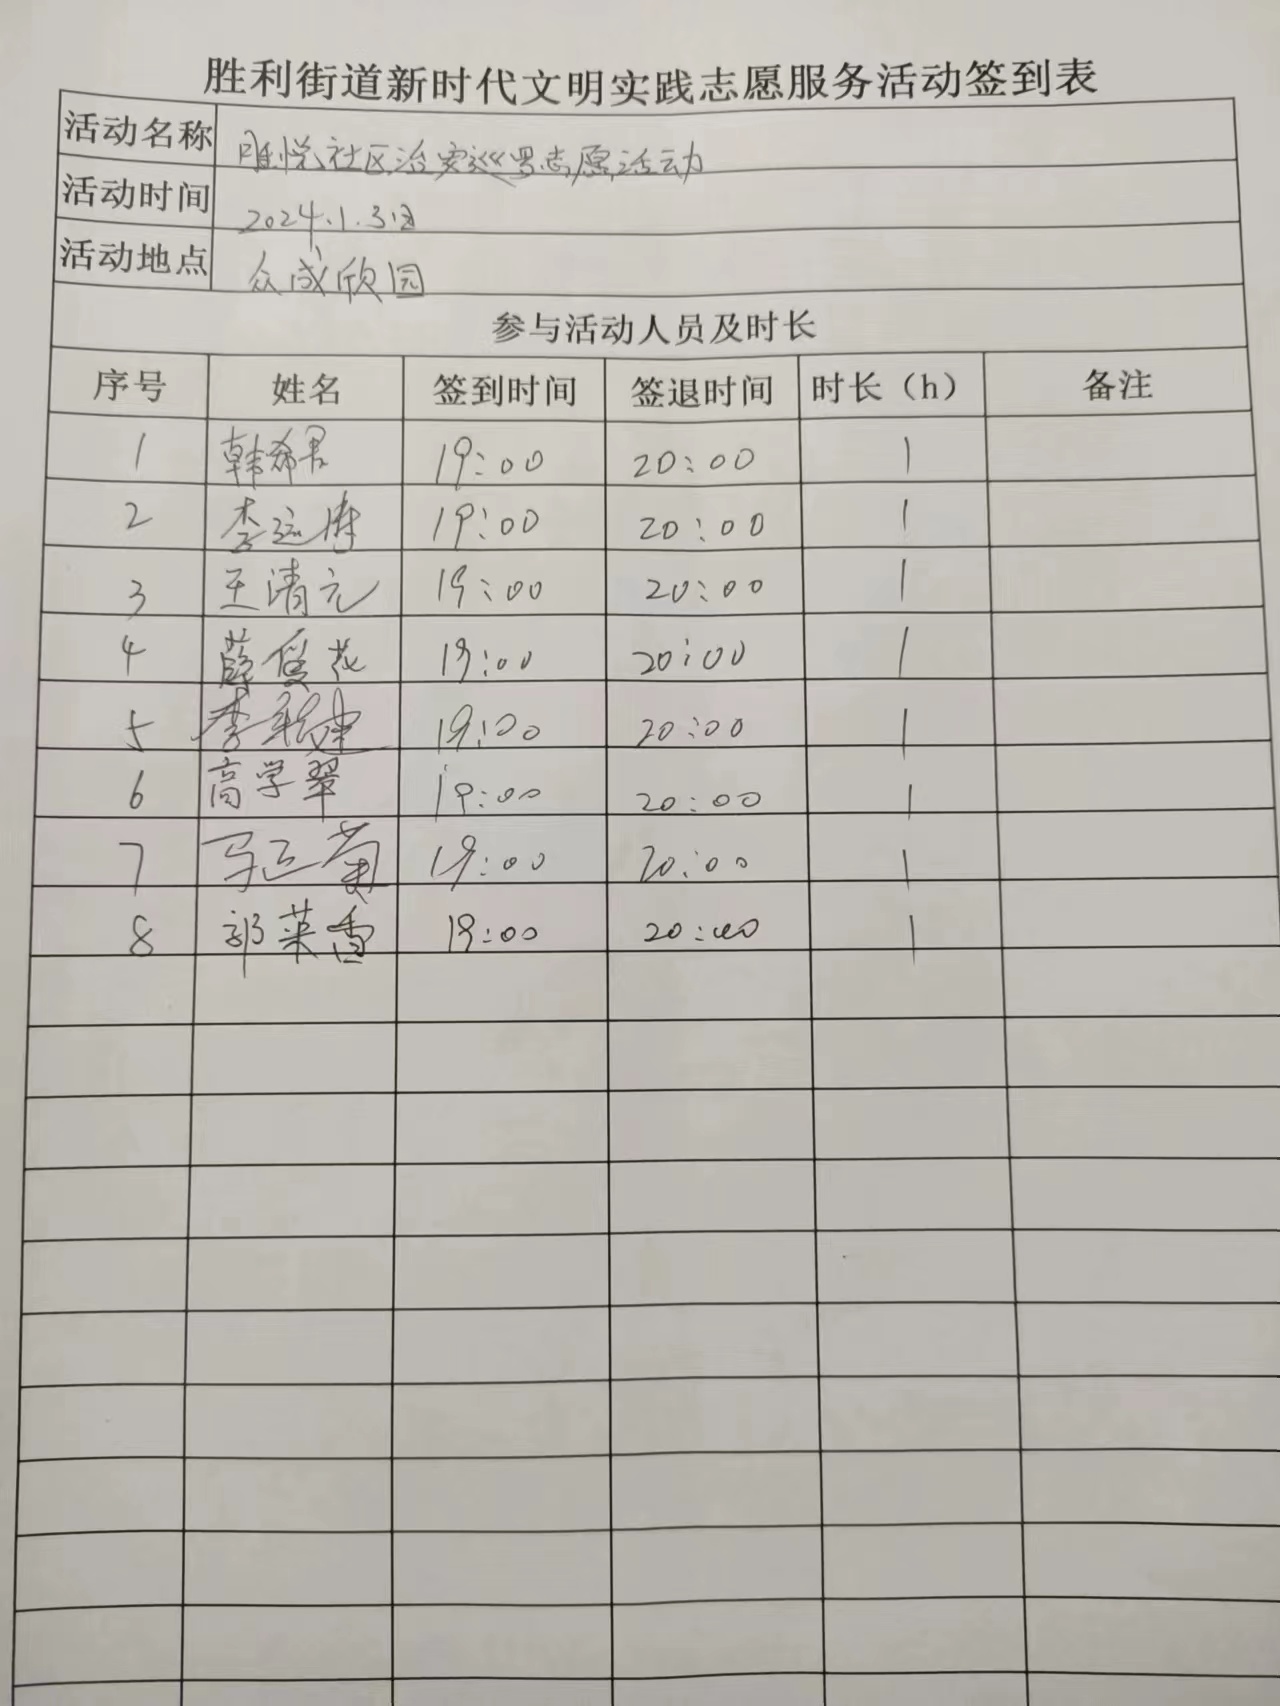 胜利街道新时代文明实践志愿服务活动签到表
活动名称 社区治安巡逻志愿活动
活动时间 2024.1.31日
活动地点 众成欣园
参与活动人员及时长
序号 姓名 签到时间 签退时间 时长（h） 备注
1 韩希君 19:00 20:00 1
2 李 19:00 20:00 1
3 王清元 19:00 20:00 1
4 薛俊花 19:00 20:00 1
5 李 19:00 20:00 1
6 高学翠 19:00 20:00 1
7 马 菊 19:00 20:00 1
8 郭莱香 19:00 20:00 1